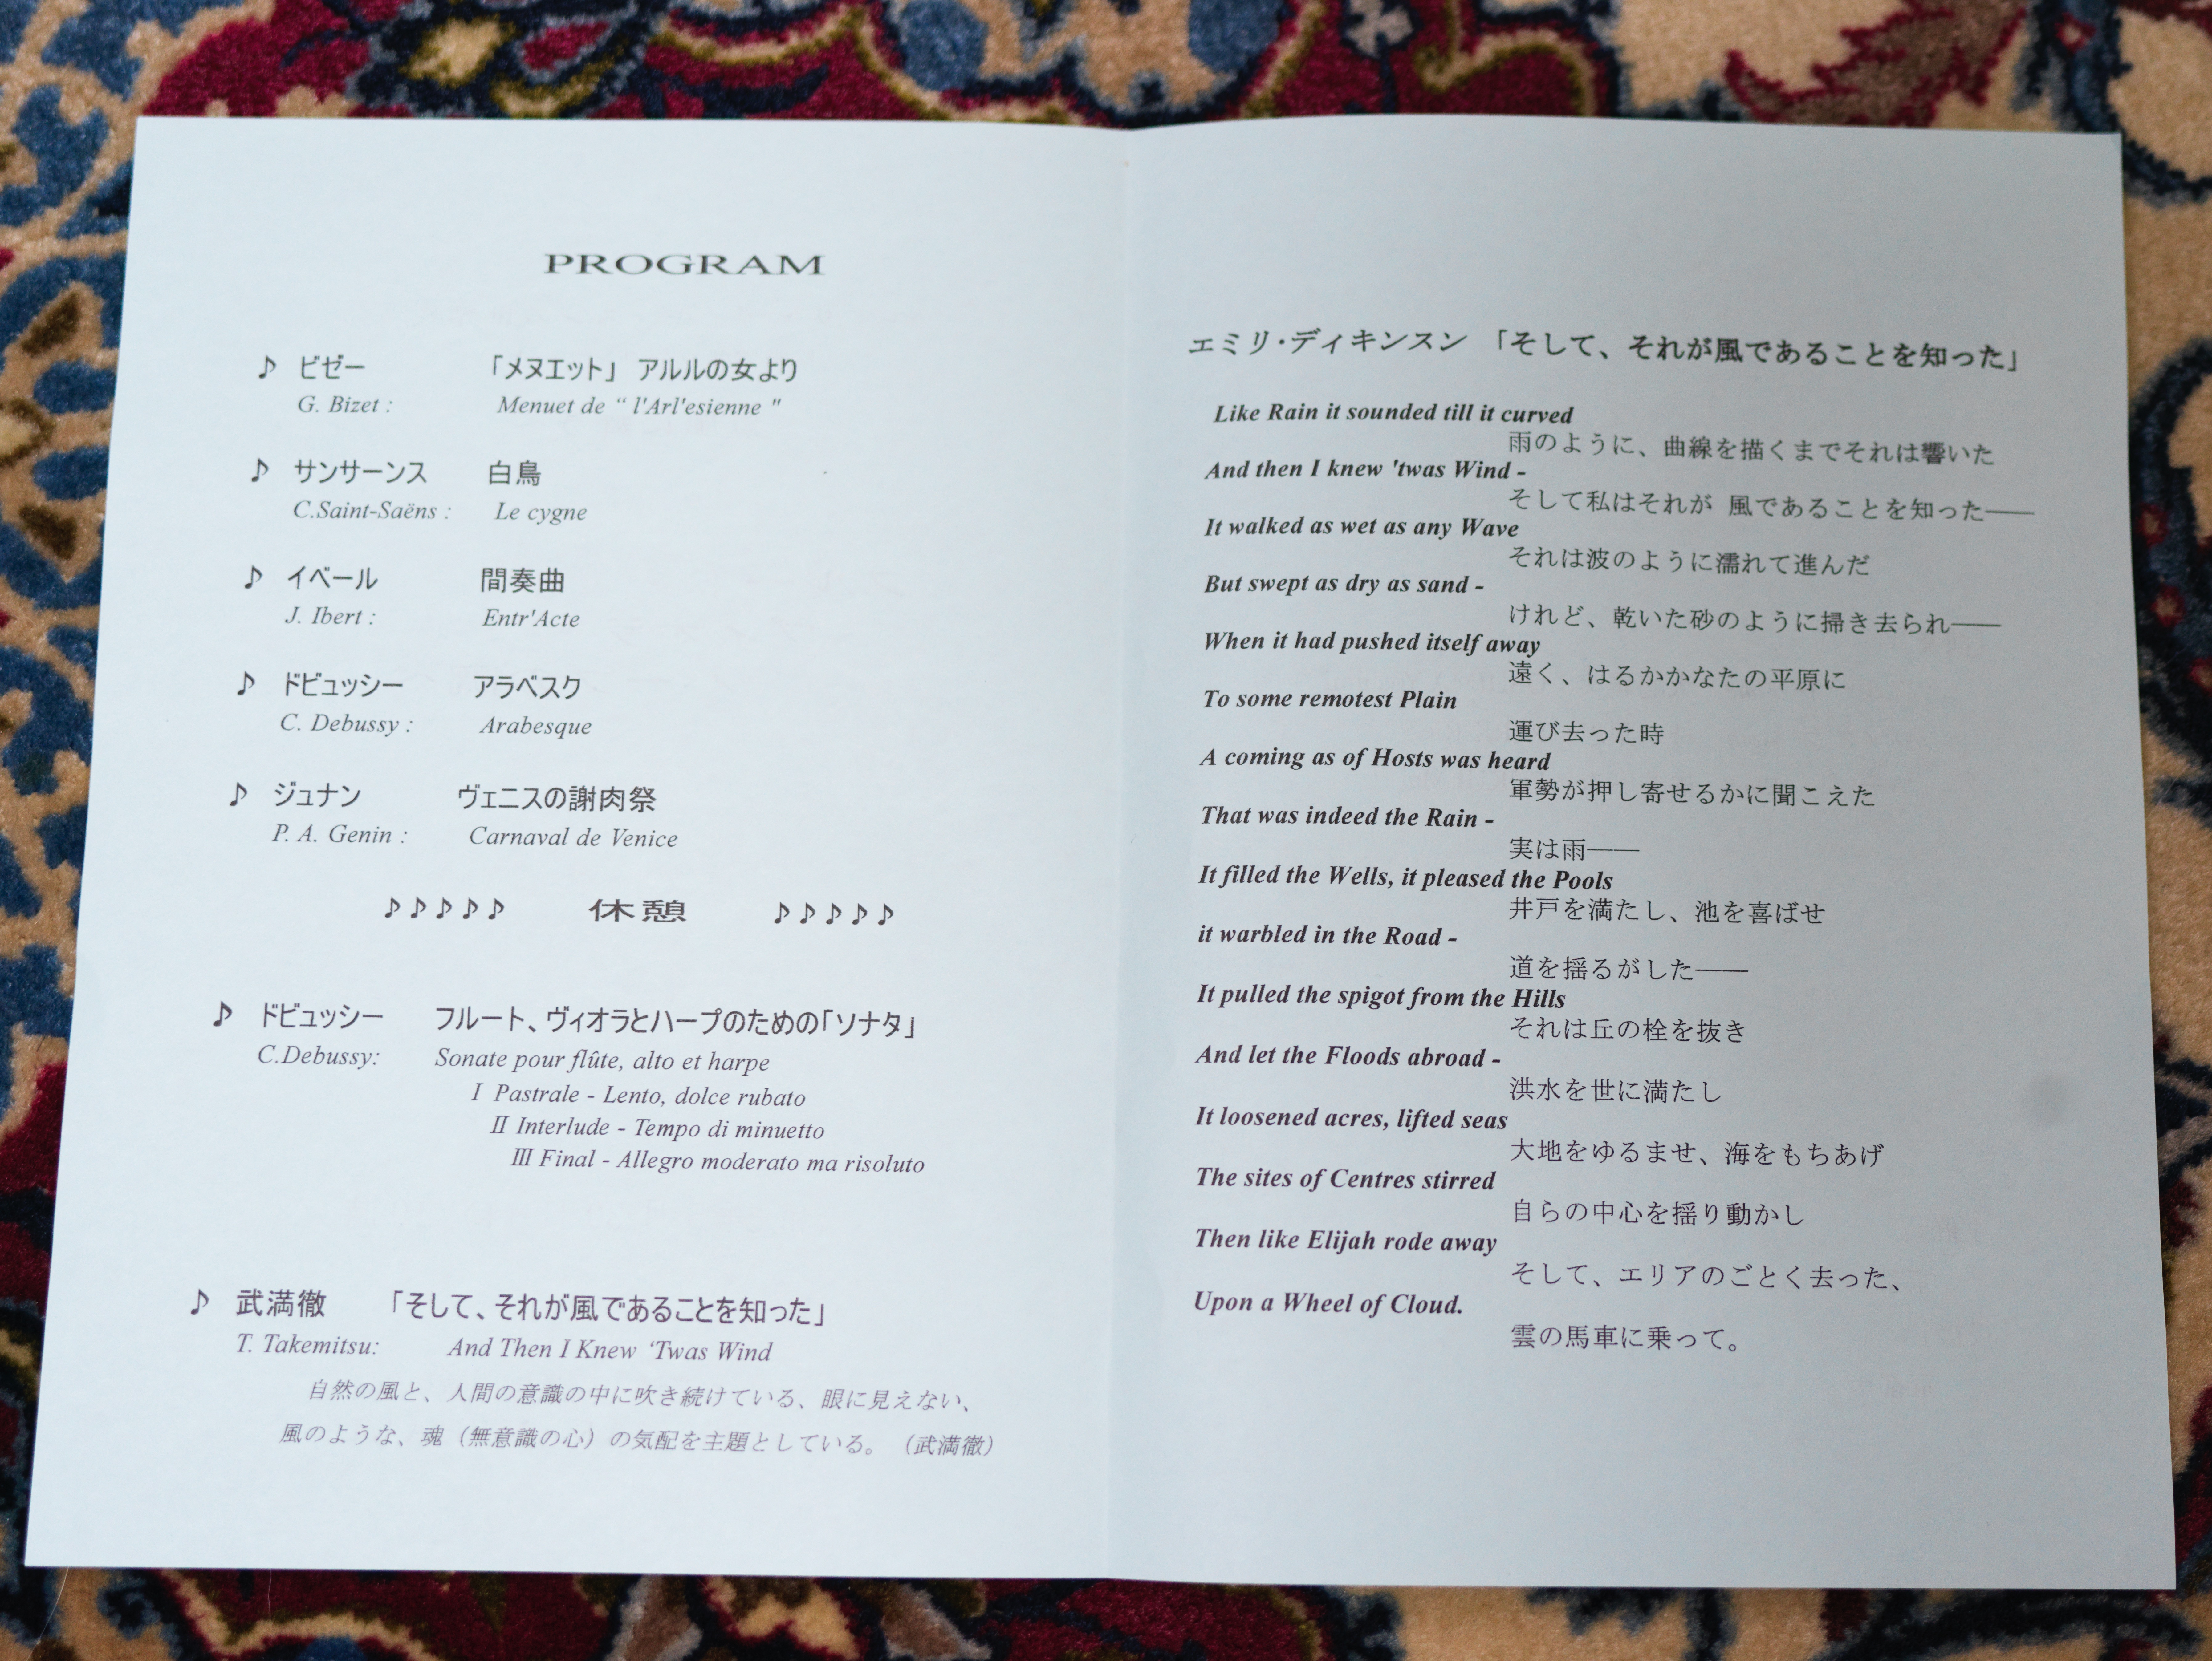 PROGRAM
♪ ビゼー 「メヌエット」 アルルの女より
G. Bizet : Menuet de “ l'Arl'esienne "
♪ サンサーンス 白鳥
C.Saint-Saëns : Le cygne
♪ イベール 間奏曲
J. Ibert : Entr'Acte
♪ ドビュッシー アラベスク
C. Debussy : Arabesque
♪ ジュナン ヴェニスの謝肉祭
P. A. Genin : Carnaval de Venice
♪♪♪♪♪ 休憩 ♪♪♪♪♪
♪ ドビュッシー フルート、ヴィオラとハープのための「ソナタ」
C.Debussy: Sonate pour flûte, alto et harpe
Ⅰ Pastrale - Lento, dolce rubato
Ⅱ Interlude - Tempo di minuetto
Ⅲ Final - Allegro moderato ma risoluto
♪ 武満徹 「そして、それが風であることを知った」
T. Takemitsu: And Then I Knew ‘Twas Wind
自然の風と、人間の意識の中に吹き続けている、眼に見えない、
風のような、魂（無意識の心）の気配を主題としている。（武満徹）
エミリ・ディキンスン 「そして、それが風であることを知った」
Like Rain it sounded till it curved
雨のように、曲線を描くまでそれは響いた
And then I knew 'twas Wind -
そして私はそれが 風であることを知った――
It walked as wet as any Wave
それは波のように濡れて進んだ
But swept as dry as sand -
けれど、乾いた砂のように掃き去られ――
When it had pushed itself away
遠く、はるかかなたの平原に
To some remotest Plain
運び去った時
A coming as of Hosts was heard
軍勢が押し寄せるかに聞こえた
That was indeed the Rain -
実は雨――
It filled the Wells, it pleased the Pools
井戸を満たし、池を喜ばせ
it warbled in the Road -
道を揺るがした――
It pulled the spigot from the Hills
それは丘の栓を抜き
And let the Floods abroad -
洪水を世に満たし
It loosened acres, lifted seas
大地をゆるませ、海をもちあげ
The sites of Centres stirred
自らの中心を揺り動かし
Then like Elijah rode away
そして、エリアのごとく去った、
Upon a Wheel of Cloud.
雲の馬車に乗って。